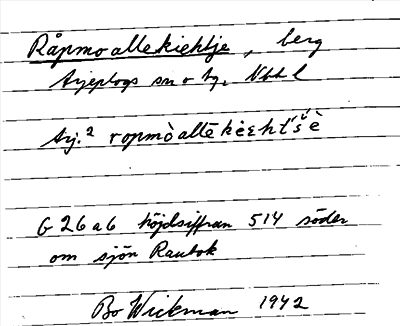 Råpmoallekiehtje, berg
Arjeplogs sn o tg, Nbtl l
Arj.² ropmòallēkèɛht́śè
G 26 a 6 höjdsiffran 514 söder
om sjön Raubok
Bo Wickman 1942